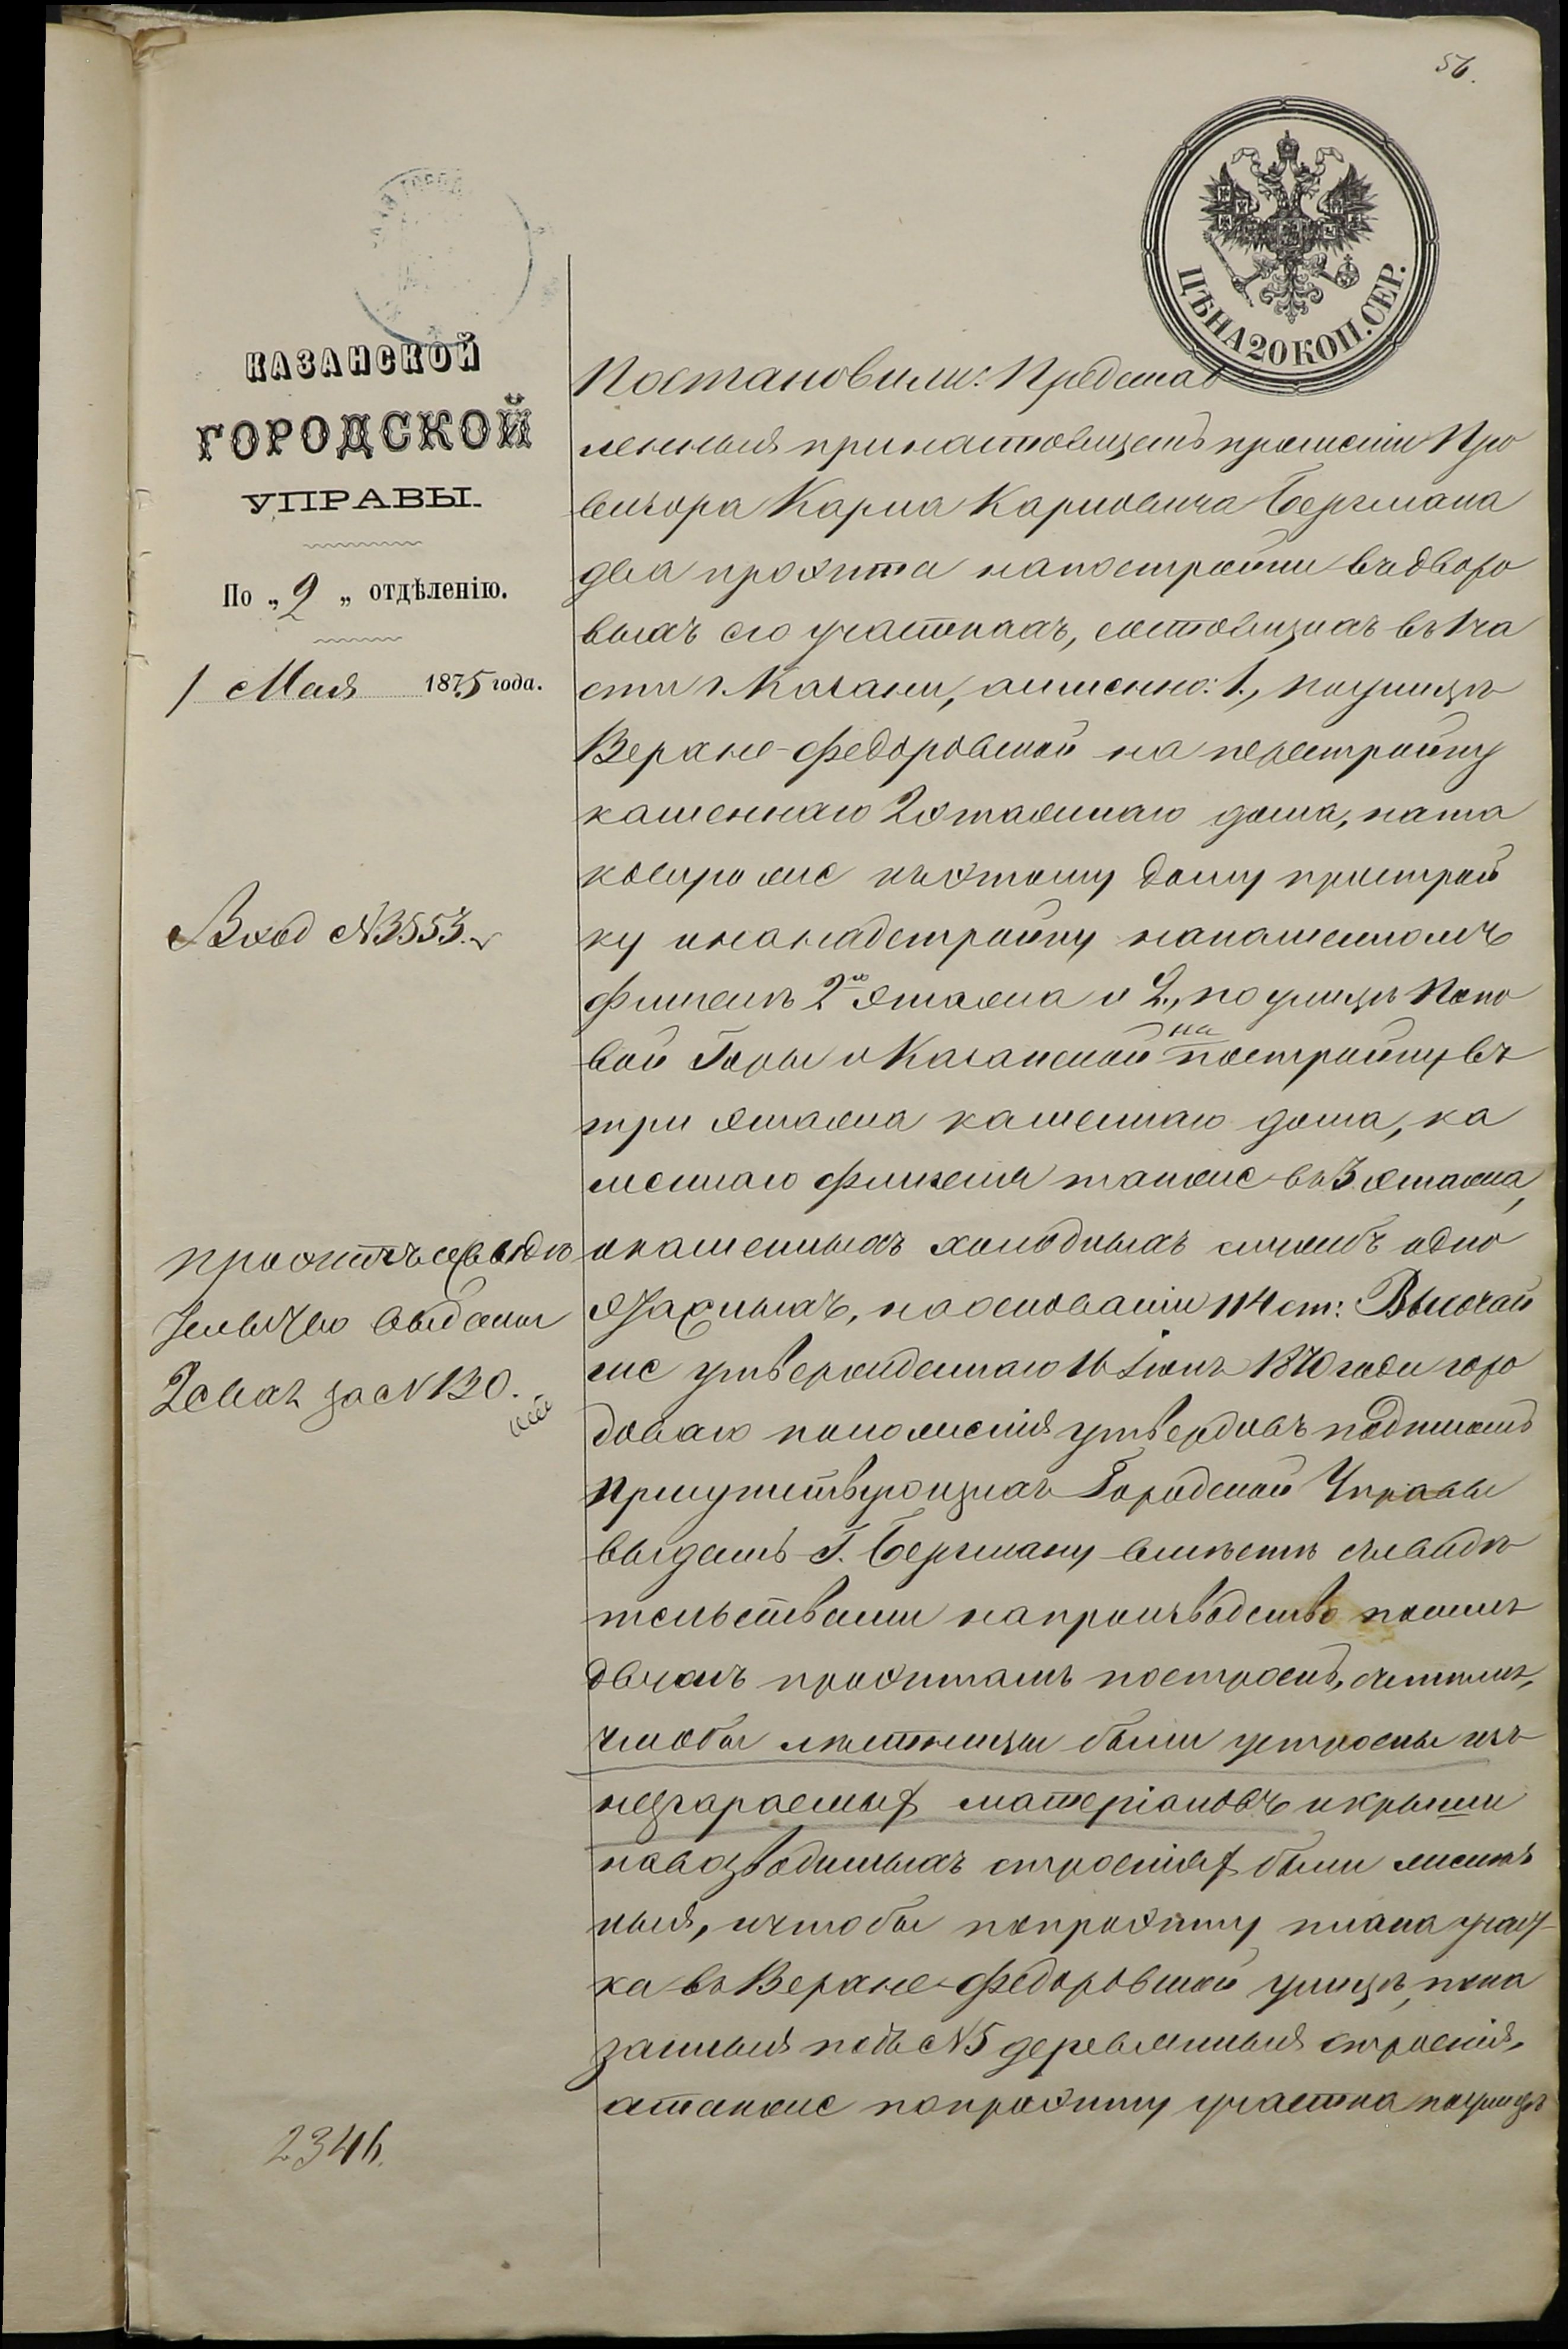 56.
ЦѢНА 20 КОП. СЕР.
КАЗАНСКОЙ
ГОРОДСКОЙ
УПРАВЫ.
По „2„ отдѣленію.
1 Мая 1875 года.
Вход №3553.
Проэктъ и свидѣ
2 свят за №130.
2346.
Постановили: Представ
ленныя принастоящемъ прошеніи Про
визора Карла Карловича Бергмана
два проэкта напостройки въдворо
выхъ его участкахъ, состоящихъ въ 1 ча
сти г. Казани, аименно: 1., поулицѣ
Верхне-Федоровской на перестройку
каменнаго 2хэтажнаго дома, ната
ковую же къэтому дому пристрой
ку инанадстройку накаменномъ
флигелѣ 2го этажа и 2., по улицѣ Попо
вой Горы и Казанской на постройку въ
три этажа каменнаго дома, ка
меннаго флигеля также въ 3 этажа,
икаменныхъ холодныхъ службъ одно
этажныхъ, наоснованіи 114 ст: Высочай
ше утвержденнаго 16 Іюня 1870 года горо
доваго положенія утвердивъ подписомъ
Присутствующихъ Городской Управы
выдать Г. Бергману вмѣстѣ съсвидѣ
тельствами напроизводство поимъ
двумъ проэктамъ построекъ, стѣмъ,
чтобы лѣстницы были устроены изъ
несгараемыхъ матеріаловъ икрыши
навозводимыхъ строеніяхъ были желѣз
ныя, ичтобы попроэкту плана участ
ка въ Верхне-Федоровской улицѣ, пока
занныя подъ №5 деревянныя строенія,
атакже попроэкту участка поулицѣ